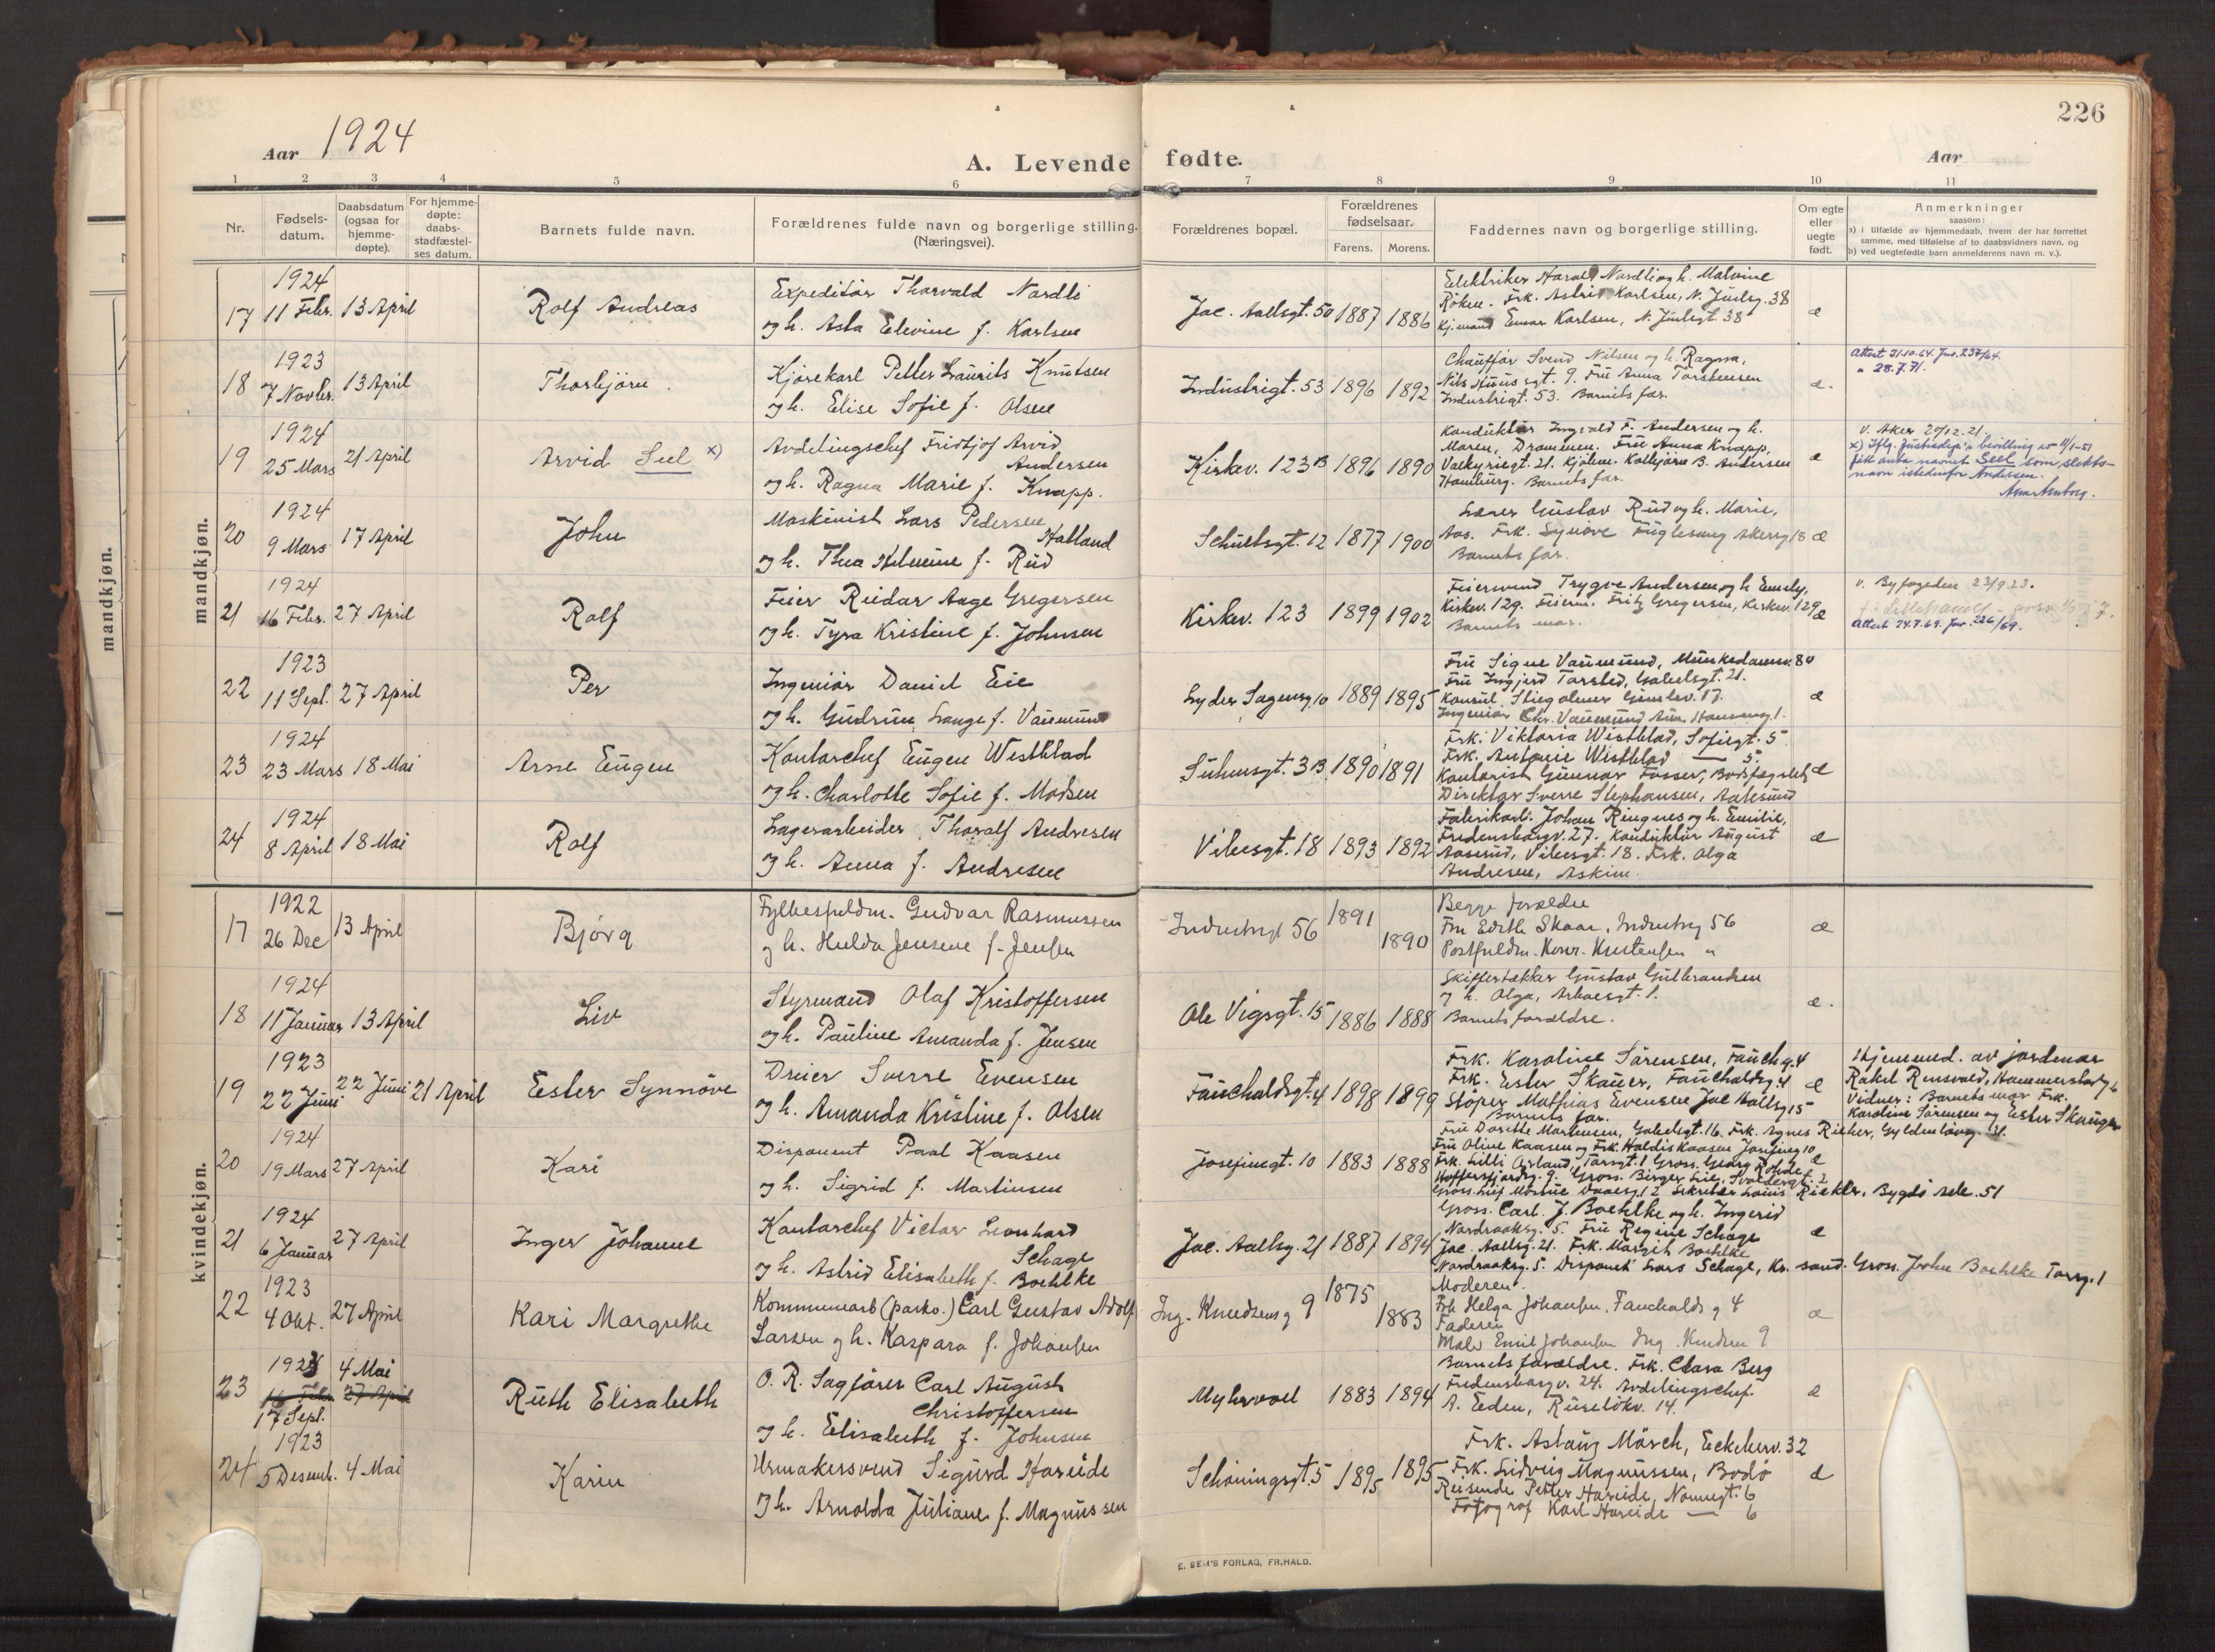 226
Aar 1924
A. Levende fødte.
Aar
1 2 3 4 5 6 7 8 9 10 11
Nr.
Fødsels-
datum.
Daabsdatum
(ogsaa for
hjemme-
døpte).
For hjemme-
døpte:
daabs-
stadfæstel-
ses datum.
Barnets fulde navn.
Forældrenes fulde navn og borgerlige stilling.
(Næringsvei).
Forældrenes bopæl.
Forældrenes
fødselsaar.
Farens. Morens.
Faddernes navn og borgerlige stilling.
Om egte
eller
uegte
født.
Anmerkninger
saasom:
a) i tilfælde av hjemmedaab, hvem der har forrettet
samme, med tilføielse af to daabsvidners navn, og
b) ved uegtefødte barn anmelderens navn m. v.).
mandkjøn.
mandkjøn.
1924
17 11 Febr. 13 April
Rolf Andreas
Expeditør Thorvald Nordli
og h. Asta Elevine f. Karlsen
Jac. Aallsgt. 50 1887 1886
Elektriker Harald Nordli og h. Malvine
Røken. Frk. Astrid Karlsen, N. Juelsg. 38
Kj.mand Einar Karlsen, N. Juelsgt. 38
æ
1923
18 7 Novbr. 13 April
Thorbjørn.
Kjørekarl Petter Laurits Knutsen
og h. Elise Sofie f. Olsen
Industrigt. 53 1896 1892
Chauffør Svend Nilsen og h. Ragna,
Nils Huus gt. 9. Fru Anna Torstensen
Industrigt. 53. Barnets far.
æ.
Attest 31.10.64. Jnr. 237/64.
" 28.7.71.
1924
19 25 Mars 21 April
Arvid Seel x)
Avdelingschef Fridtjof Arvid
Andersen
og h. Ragna Marie f. Knapp.
Kirkev. 123B 1896 1890
Konduktør Ingvald F. Andersen og h.
Maren, Drammen. Frue Anna Knapp,
Valkyriegt. 21. Kjøbm. Kolbjørn B. Andersen
Hamburg. Barnets far.
æ
v. Aker 20/12.21.
x) Iflg. Justisdep's bevilling av 11/1-51
fikk anta navnet Seel som slekts-
navn istedenfor Andersen.
1924
20 9 Mars 17 April
John
Maskinist Lars Pedersen
Hatland
og h. Thea Helmine f. Rud
Schultsgt. 12 1877 1900
Lærer Gustav Rud og h. Marie,
Aas. Frk. Synøve Fuglesang Akersg 18
Barnets far.
æ
1924
21 16 Febr. 27 April
Rolf
Feier Reidar Aage Gregersen
og h. Tyra Kristine f. Johnsen
Kirkev. 123 1899 1902
Feiersvend Trygve Andersen og h Emely,
Kirkev. 129. Feierm. Fritz Gregersen, Kirkev. 129
Barnets mor.
æ
v. Byfogeden 23/9 23.
Attest 24.7.69. Jnr. 226/69.
1923
22 11 Sept. 27 April
Per
Ingeniør Daniel Eie
og h. Gudrun Lange f. Vaumund
Lyder Sagensg. 10 1889 1895
Fru Signe Vaumund, Munkedamsv. 80
Fru Ingjerd Torsted, Gabelsgt. 21.
Konsul Stiegolmer Gimlev. 17.
Ingeniør Chr. Vaumund Aüm Hansensg 1.
æ
1924
23 23 Mars 18 Mai
Arne Eugen
Kontorchef Eugen Westblad
og h. Charlotte Sofie f. Madsen
Suhmsgt. 3B 1890 1891
Frk. Viktoria Westblad, Sofiegt. 5
Frk. Antonie Westblad — 5.
Kontorist Gunnar Fosser, Bodsfægslet
Direktør Sverre Stephansen, Aalesund
æ
1924
24 8 April 18 Mai
Rolf
Lagerarbeider Thoralf Andresen
og h. Anna f. Andresen
Vibesgt. 18 1893 1892
Fabrikarb. Johan Ringnes og h. Emilie,
Fredensborgv. 27. Konduktør August
Aaserud, Vibesgt. 18. Frk. Olga
Andresen, Askim.
æ
kvindekjøn.
1922
17 26 Dec 13 April
Bjørg
Fylkesfuldm. Gudvar Rasmussen
og h. Hulda Jensine f. Jensen
Industrigt 56 1891 1890
Begge forældre
Fru Edith Skaar, Industrig 56
Postfuldm. Konr. Kristensen "
æ
1924
18 11 Januar 13 April
Liv
Styrmand Olaf Kristoffersen
og h. Pauline Amanda f. Jensen
Ole Vigsgt. 15 1886 1888
Skiffertækker Gustav Gulbrandsen
og h. Olga, Arboesgt. 1.
Barnets forældre.
æ.
1923
19 22 Juni 22 Juni 21 April
Ester Synnöve
Dreier Sverre Evensen
og h. Amanda Kristine f. Olsen
Fauchaldsgt. 4 1898 1899
Frk. Karoline Sørensen, Fauch.g. 4
Frk. Ester Skauer, Fauchaldsg. 4
Støper Mathias Evensen Jac Aallsg 15
Barnets far.
æ
Hjemmed. av jordmor
Rakel Rensvold, Hammerstadg 6
Vidner: Barnets mor Frk.
Karoline Sørensen og Ester Skauger
1924
20 19 Mars 27 April
Kari
Disponent Paal Kaasen
og h. Sigrid f. Martinsen
Josefinegt. 10 1883 1888
Fru Dorethe Martinsen, Gabelsgt. 16. Frk. Agnes Richer, Gyldenløvsg. 21.
Fru Oline Kaasen og Frk. Haldis Kaasen Josefineg 10
Frk. Lilli Arland, Torsgt. 1 Gross. Georg Rohde
Hoffersfjordg. 9. Gross. Birger Lie, Svoldergt. 2
Richter, Bygdø Alle. 51
æ
1924
21 6 Januar 27 April
Inger Johanne
Kontorchef Victor Leonhard
Schage
og h. Astrid Elisabeth f. Boehlke
Jac. Aallsg. 21 1887 1894
Gross. Carl. J. Boehlke og h. Ingerid
Nordraaksg. 5. Fru Regine Schage
Jac. Aallsg. 21. Frk. Margit Boehlke
Nordraaksg. 5. Disponent Lars Schage, Kr. sand. Gross. John Boehlke Torsg. 1
æ
1923
22 4 Okt. 27 April
Kari Margrethe
Kommunearb (parkv.) Carl Gustav Adolf
Larsen og h. Kaspara f. Johansen
Ing. Knudsensg 9 1875 1883
Moderen.
Frk Helga Johansen, Fauchalds g 4
Faderen
Maler Emil Johansen Ing. Knudsen 9
æ
1923 4 Mai
23 16 Feb. 27 April
17 Sept.
Ruth Elisabeth
O. R. Sagfører Carl August
Christoffersen
og h. Elisabeth f. Johnsen
Myhrvoel 1883 1894
Barnets forældre. Frk. Clara Berg
Fredensborgv. 24. Avdelingschef.
A. Eeden, Ruseløkv. 14.
æ
1923
24 5 Desemb. 4 Mai
Karin
Urmakersvend Sigurd Hareide
og h. Arnolda Juliane f. Magnussen
Schøningsgt. 5 1895 1895
Frk. Aslaug Mørch, Eckebergv. 32
Frk. Ludvig Magnussen, Bodø
Reisende Petter Hareide, Nonnegt. 6
Fotograf Karl Hareide — 6
æ
E. SEM'S FORLAG, FR.HALD.